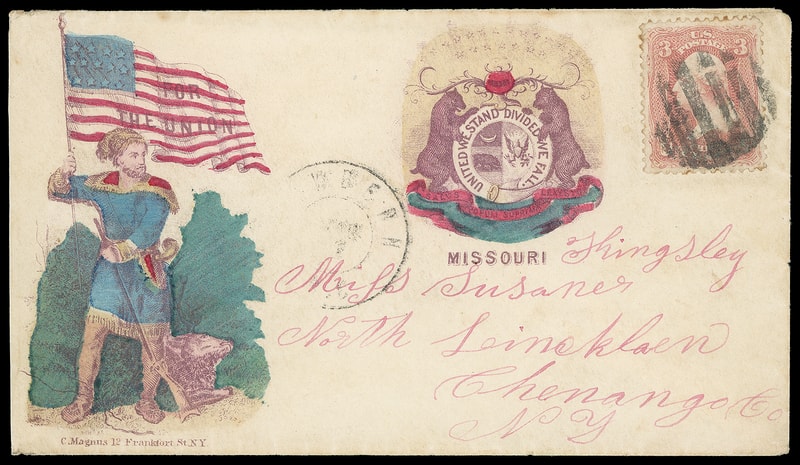 FOR
THE UNION
C. Magnus 12 Frankfort St. N.Y.
MISSOURI
UNITED WE STAND DIVIDED WE FALL
MISSOURI
3 U.S. POSTAGE 3
Miss Susaner Khingsley
North Lincklaen
Chenango Co
N Y